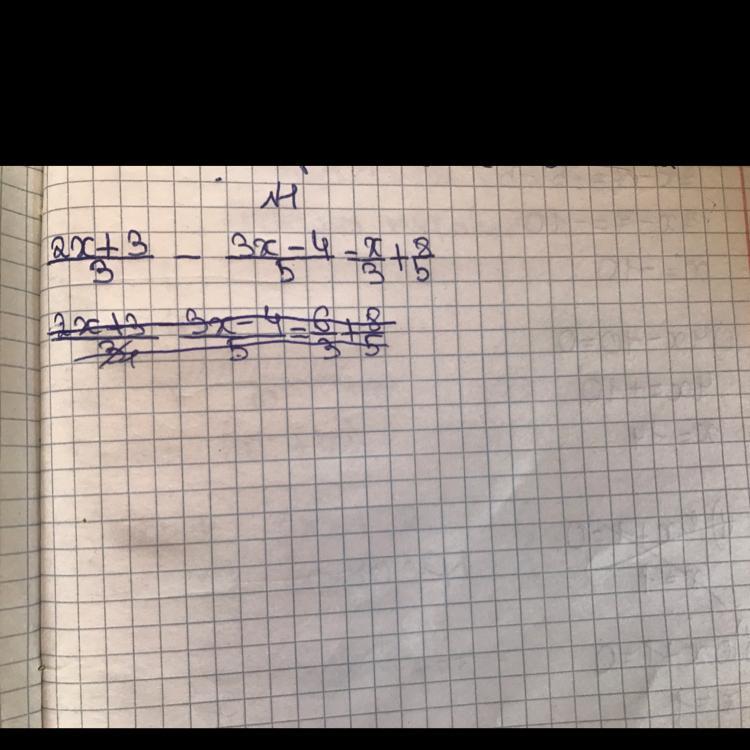 №1
(2x+3)/3 - (3x-4)/5 = x/3 + 8/5
(2x+3)/3 (3x-4)/5 = 6/3 + 8/5